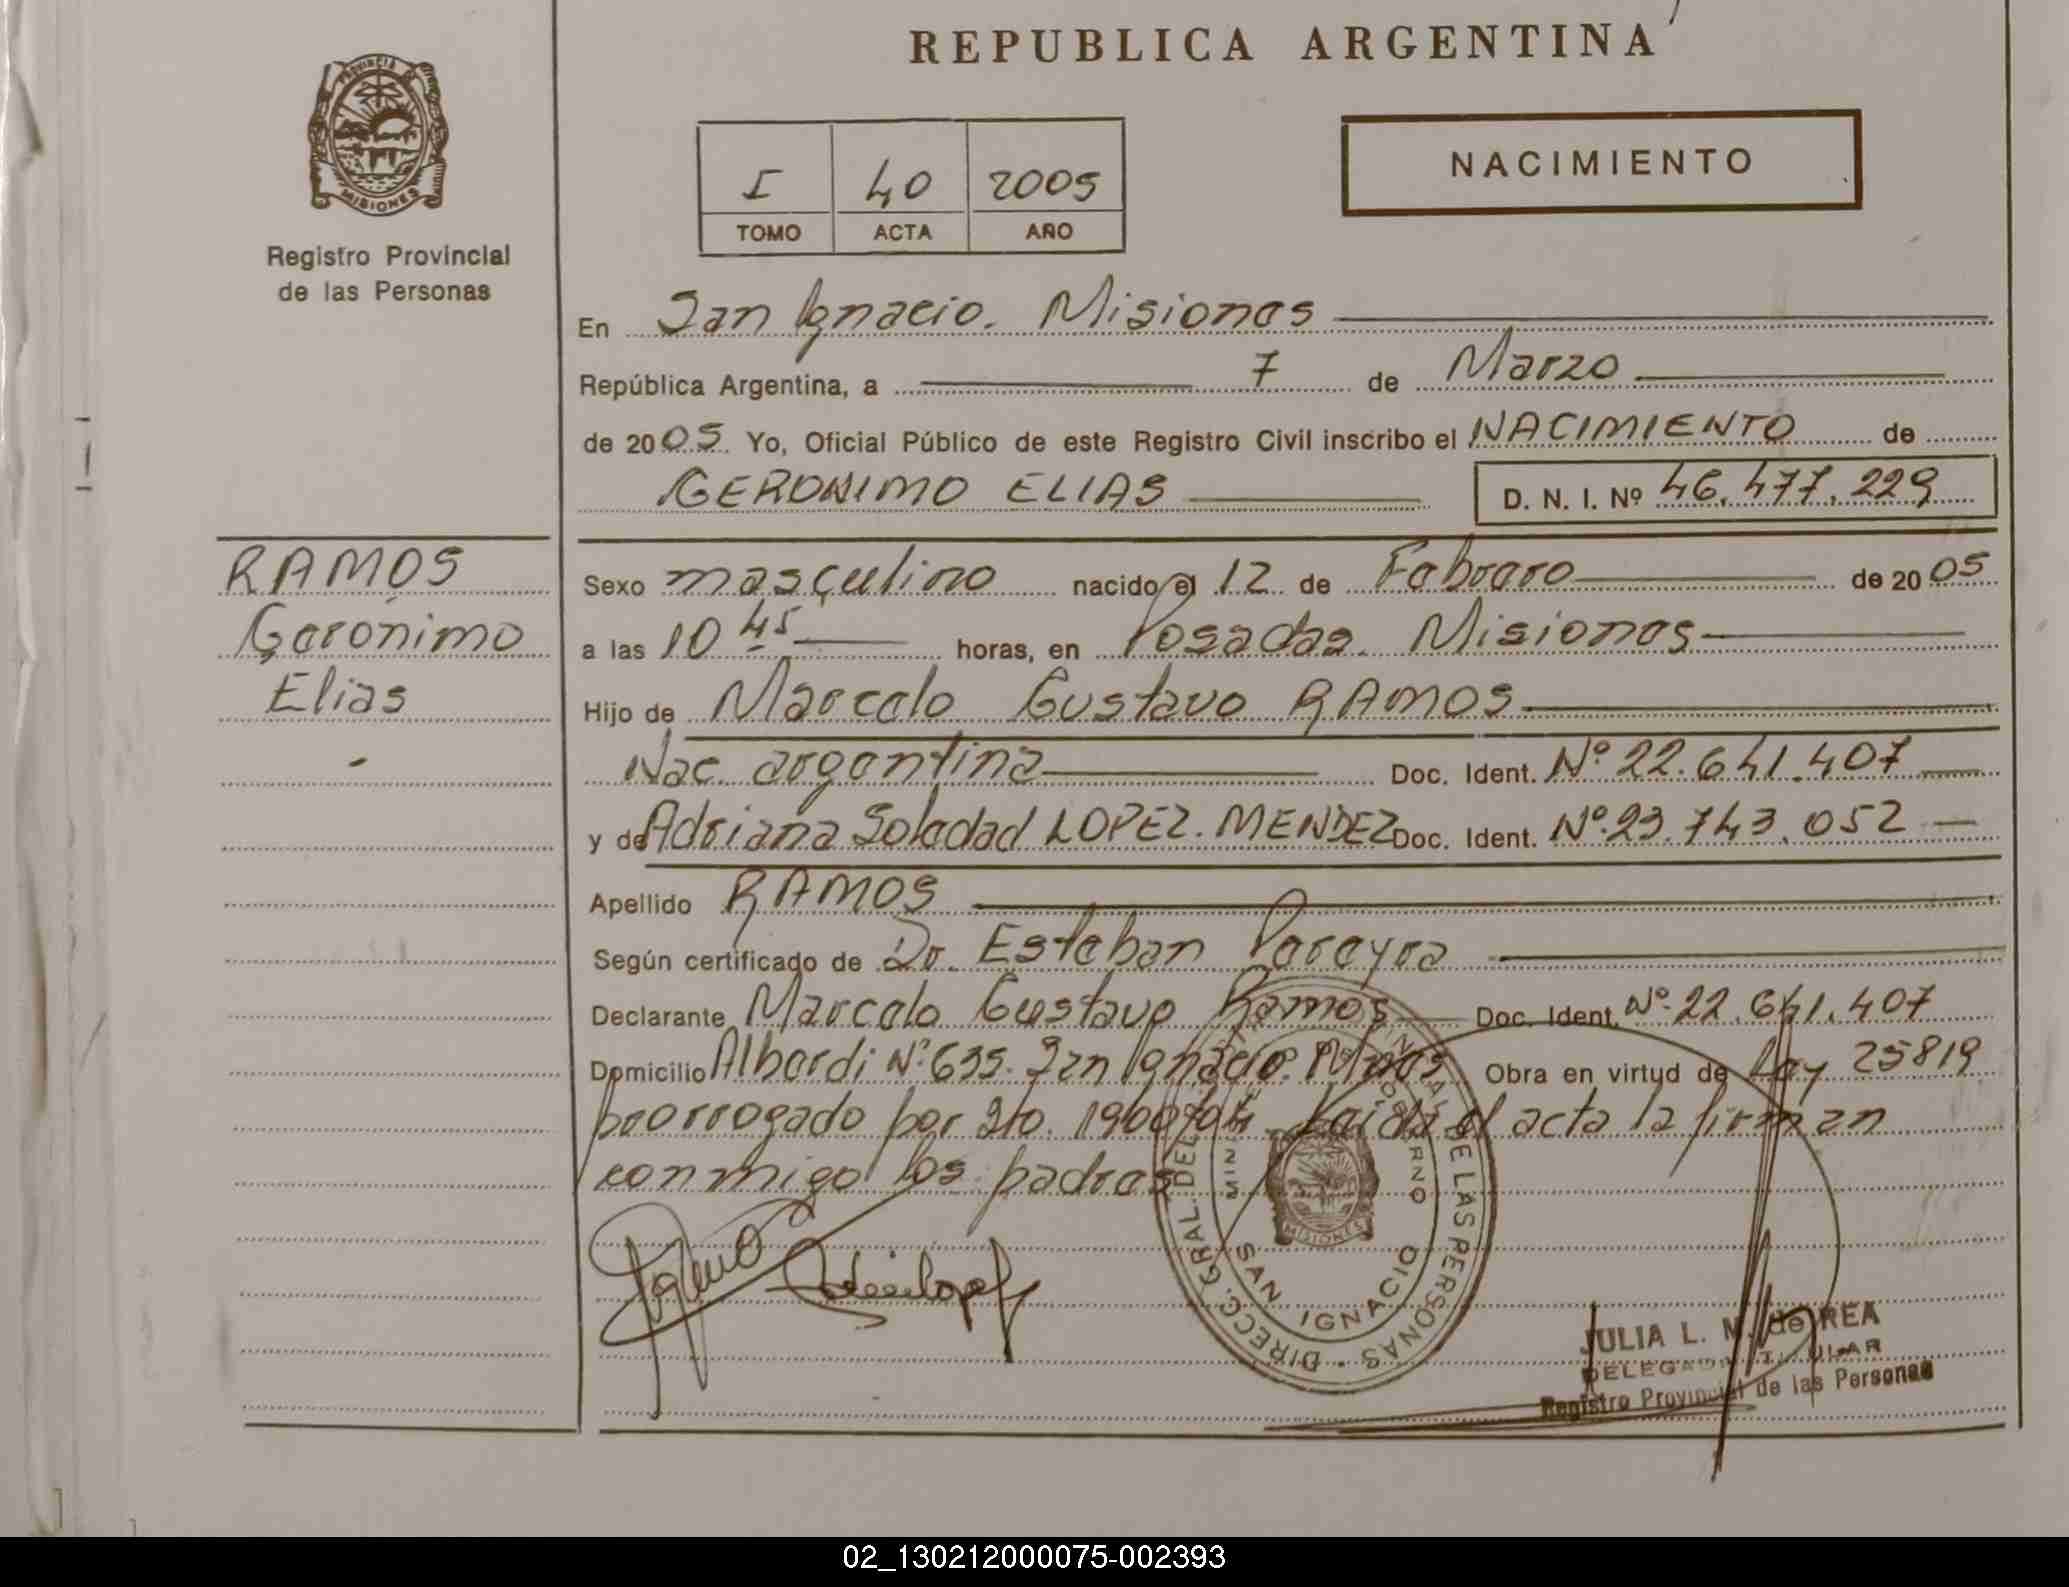 REPUBLICA ARGENTINA
NACIMIENTO
I 40 2005
TOMO ACTA AÑO
PROVINCIA DE
MISIONES
Registro Provincial
de las Personas
En San Ignacio. Misiones
República Argentina, a 7 de Marzo
de 2005. Yo, Oficial Público de este Registro Civil inscribo el NACIMIENTO de
GERONIMO ELIAS D. N. I. Nº 46.477.229
RAMOS
Gerónimo
Elias
Sexo masculino nacido el 12 de Febrero de 2005
a las 10 45 horas, en Posadas. Misiones
Hijo de Marcelo Gustavo RAMOS
Nac. argentina Doc. Ident. Nº 22.641.407
y de Adriana Soledad LOPEZ. MENDEZ Doc. Ident. Nº 23.743.052
Apellido RAMOS
Según certificado de Dr. Esteban Pereyra
Declarante Marcelo Gustavo Ramos Doc. Ident. Nº 22.641.407
Domicilio Alberdi Nº 635. San Ignacio. Obra en virtud de Ley 25819
prorrogado por Dto. 1960/04. Leída el acta la firman
conmigo los padres
DIRECC. GRAL. DEL DE LAS PERSONAS
SAN IGNACIO
MISIONES
JULIA L. M. de REA
DELEGADA TITULAR
Registro Provincial de las Personas
02_130212000075-002393